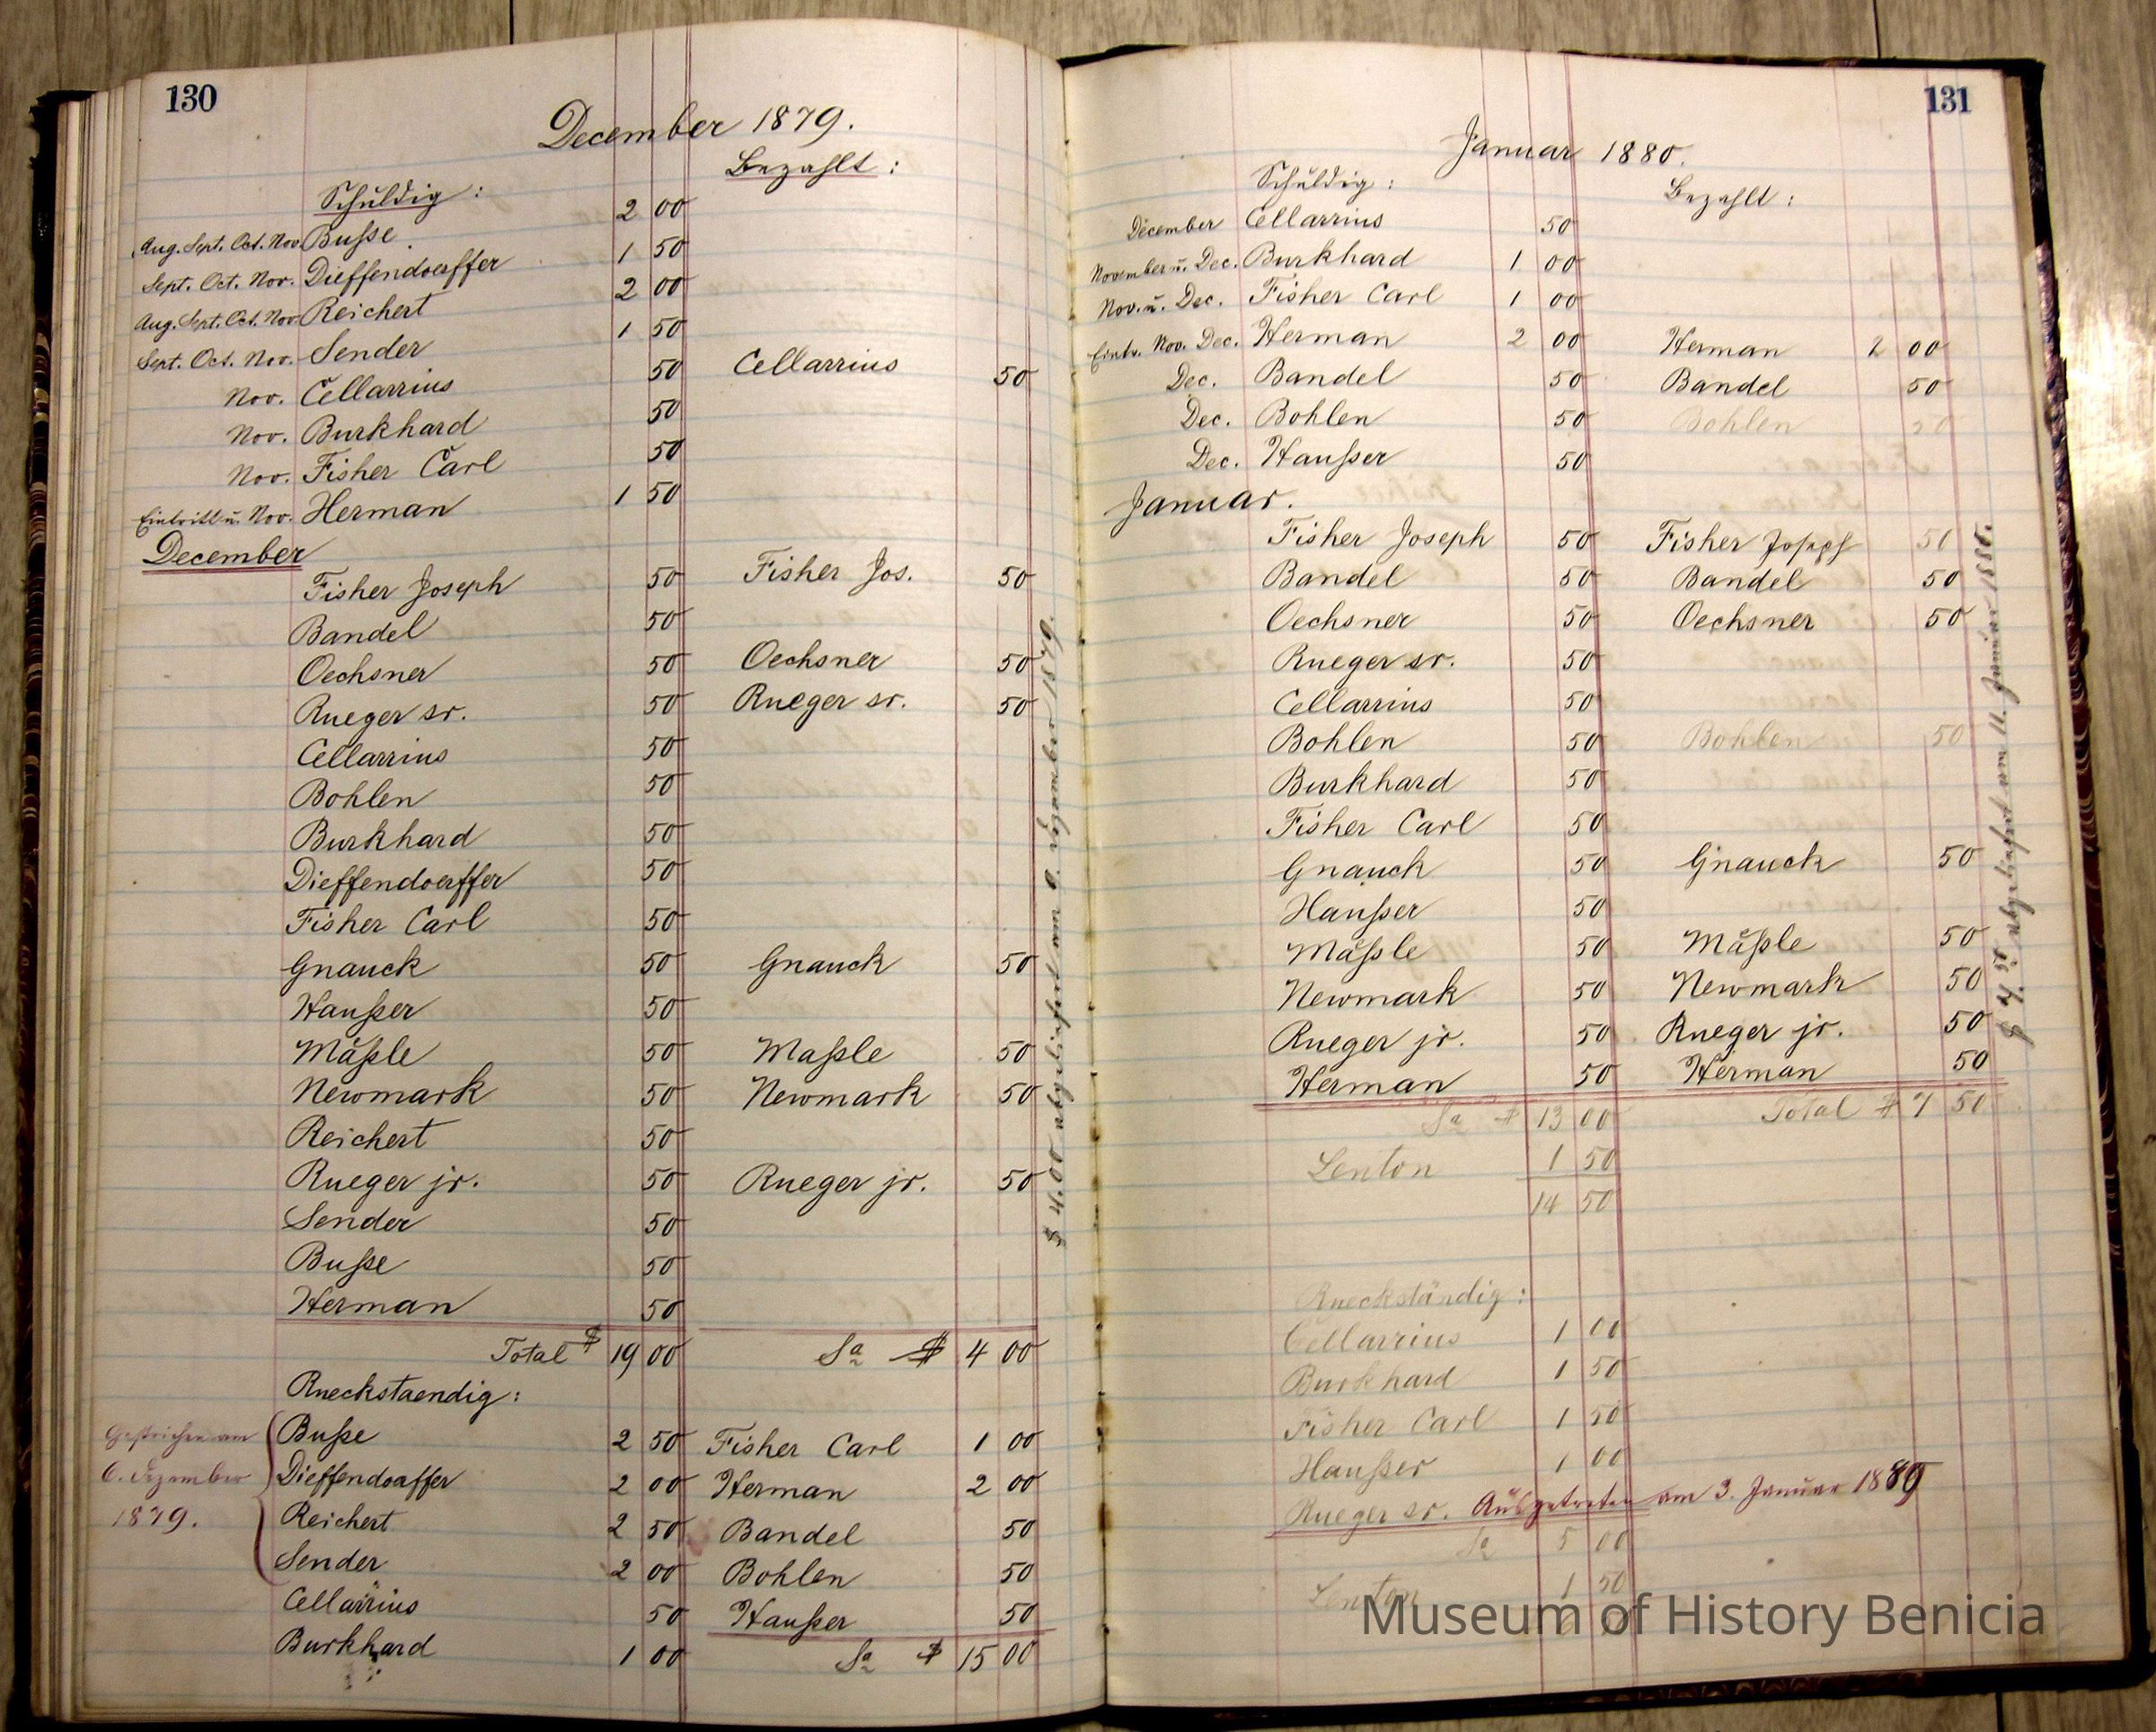 130
December 1879.
Schuldig: Bezahlt:
Aug. Sept. Oct. Nov. Buſse 2 00
Sept. Oct. Nov. Dieffendoerffer 1 50
Aug. Sept. Oct. Nov. Reichert 2 00
Sept. Oct. Nov. Sender 1 50
Nov. Cellarrius 50 Cellarrius 50
Nov. Burkhard 50
Nov. Fisher Carl 50
Eintritt u. Nov. Herman 1 50
December
Fisher Joseph 50 Fisher Jos. 50
Bandel 50
Oechsner 50 Oechsner 50
Rueger sr. 50 Rueger sr. 50
Cellarrius 50
Bohlen 50
Burkhard 50
Dieffendoerffer 50
Fisher Carl 50
Gnauck 50 Gnauck 50
Hauſser 50
Mäſsle 50 Maſsle 50
Newmark 50 Newmark 50
Reichert 50
Rueger jr. 50 Rueger jr. 50
Sender 50
Buſse 50
Herman 50
Total $ 19 00 Sa $ 4 00
Rueckstaendig:
Buſse 2 50 Fisher Carl 1 00
Dieffendoerffer 2 00 Herman 2 00
Reichert 2 50 Bandel 50
Sender 2 00 Bohlen 50
Cellarrius 50 Hauſser 50
Burkhard 1 00 Sa $ 15 00
Gestrichen am
6. Dezember
1879.
$ 4.00 abgeliefert am Dezember 1879.
131
Januar 1880.
Schuldig: Bezahlt:
December Cellarrius 50
November u. Dec. Burkhard 1 00
Nov. u. Dec. Fisher Carl 1 00
Eintr. Nov. Dec. Herman 2 00 Herman 2 00
Dec. Bandel 50 Bandel 50
Dec. Bohlen 50 Bohlen 50
Dec. Hauſser 50
Januar.
Fisher Joseph 50 Fisher Joseph 50
Bandel 50 Bandel 50
Oechsner 50 Oechsner 50
Rueger sr. 50
Cellarrius 50
Bohlen 50 Bohlen 50
Burkhard 50
Fisher Carl 50
Gnauck 50 Gnauck 50
Hauſser 50
Mäſsle 50 Mäſsle 50
Newmark 50 Newmark 50
Rueger jr. 50 Rueger jr. 50
Herman 50 Herman 50
Sa $ 13 00 Total $ 7 50
Lenton 1 50
14 50
Rueckständig:
Cellarrius 1 00
Burkhard 1 50
Fisher Carl 1 50
Hauſser 1 00
Rueger sr. Ausgetreten am 3. Januar 1880
Sa 5 00
Lenton 1 50
$ 7.50 abgeliefert am 11. Januar 1880.
Museum of History Benicia